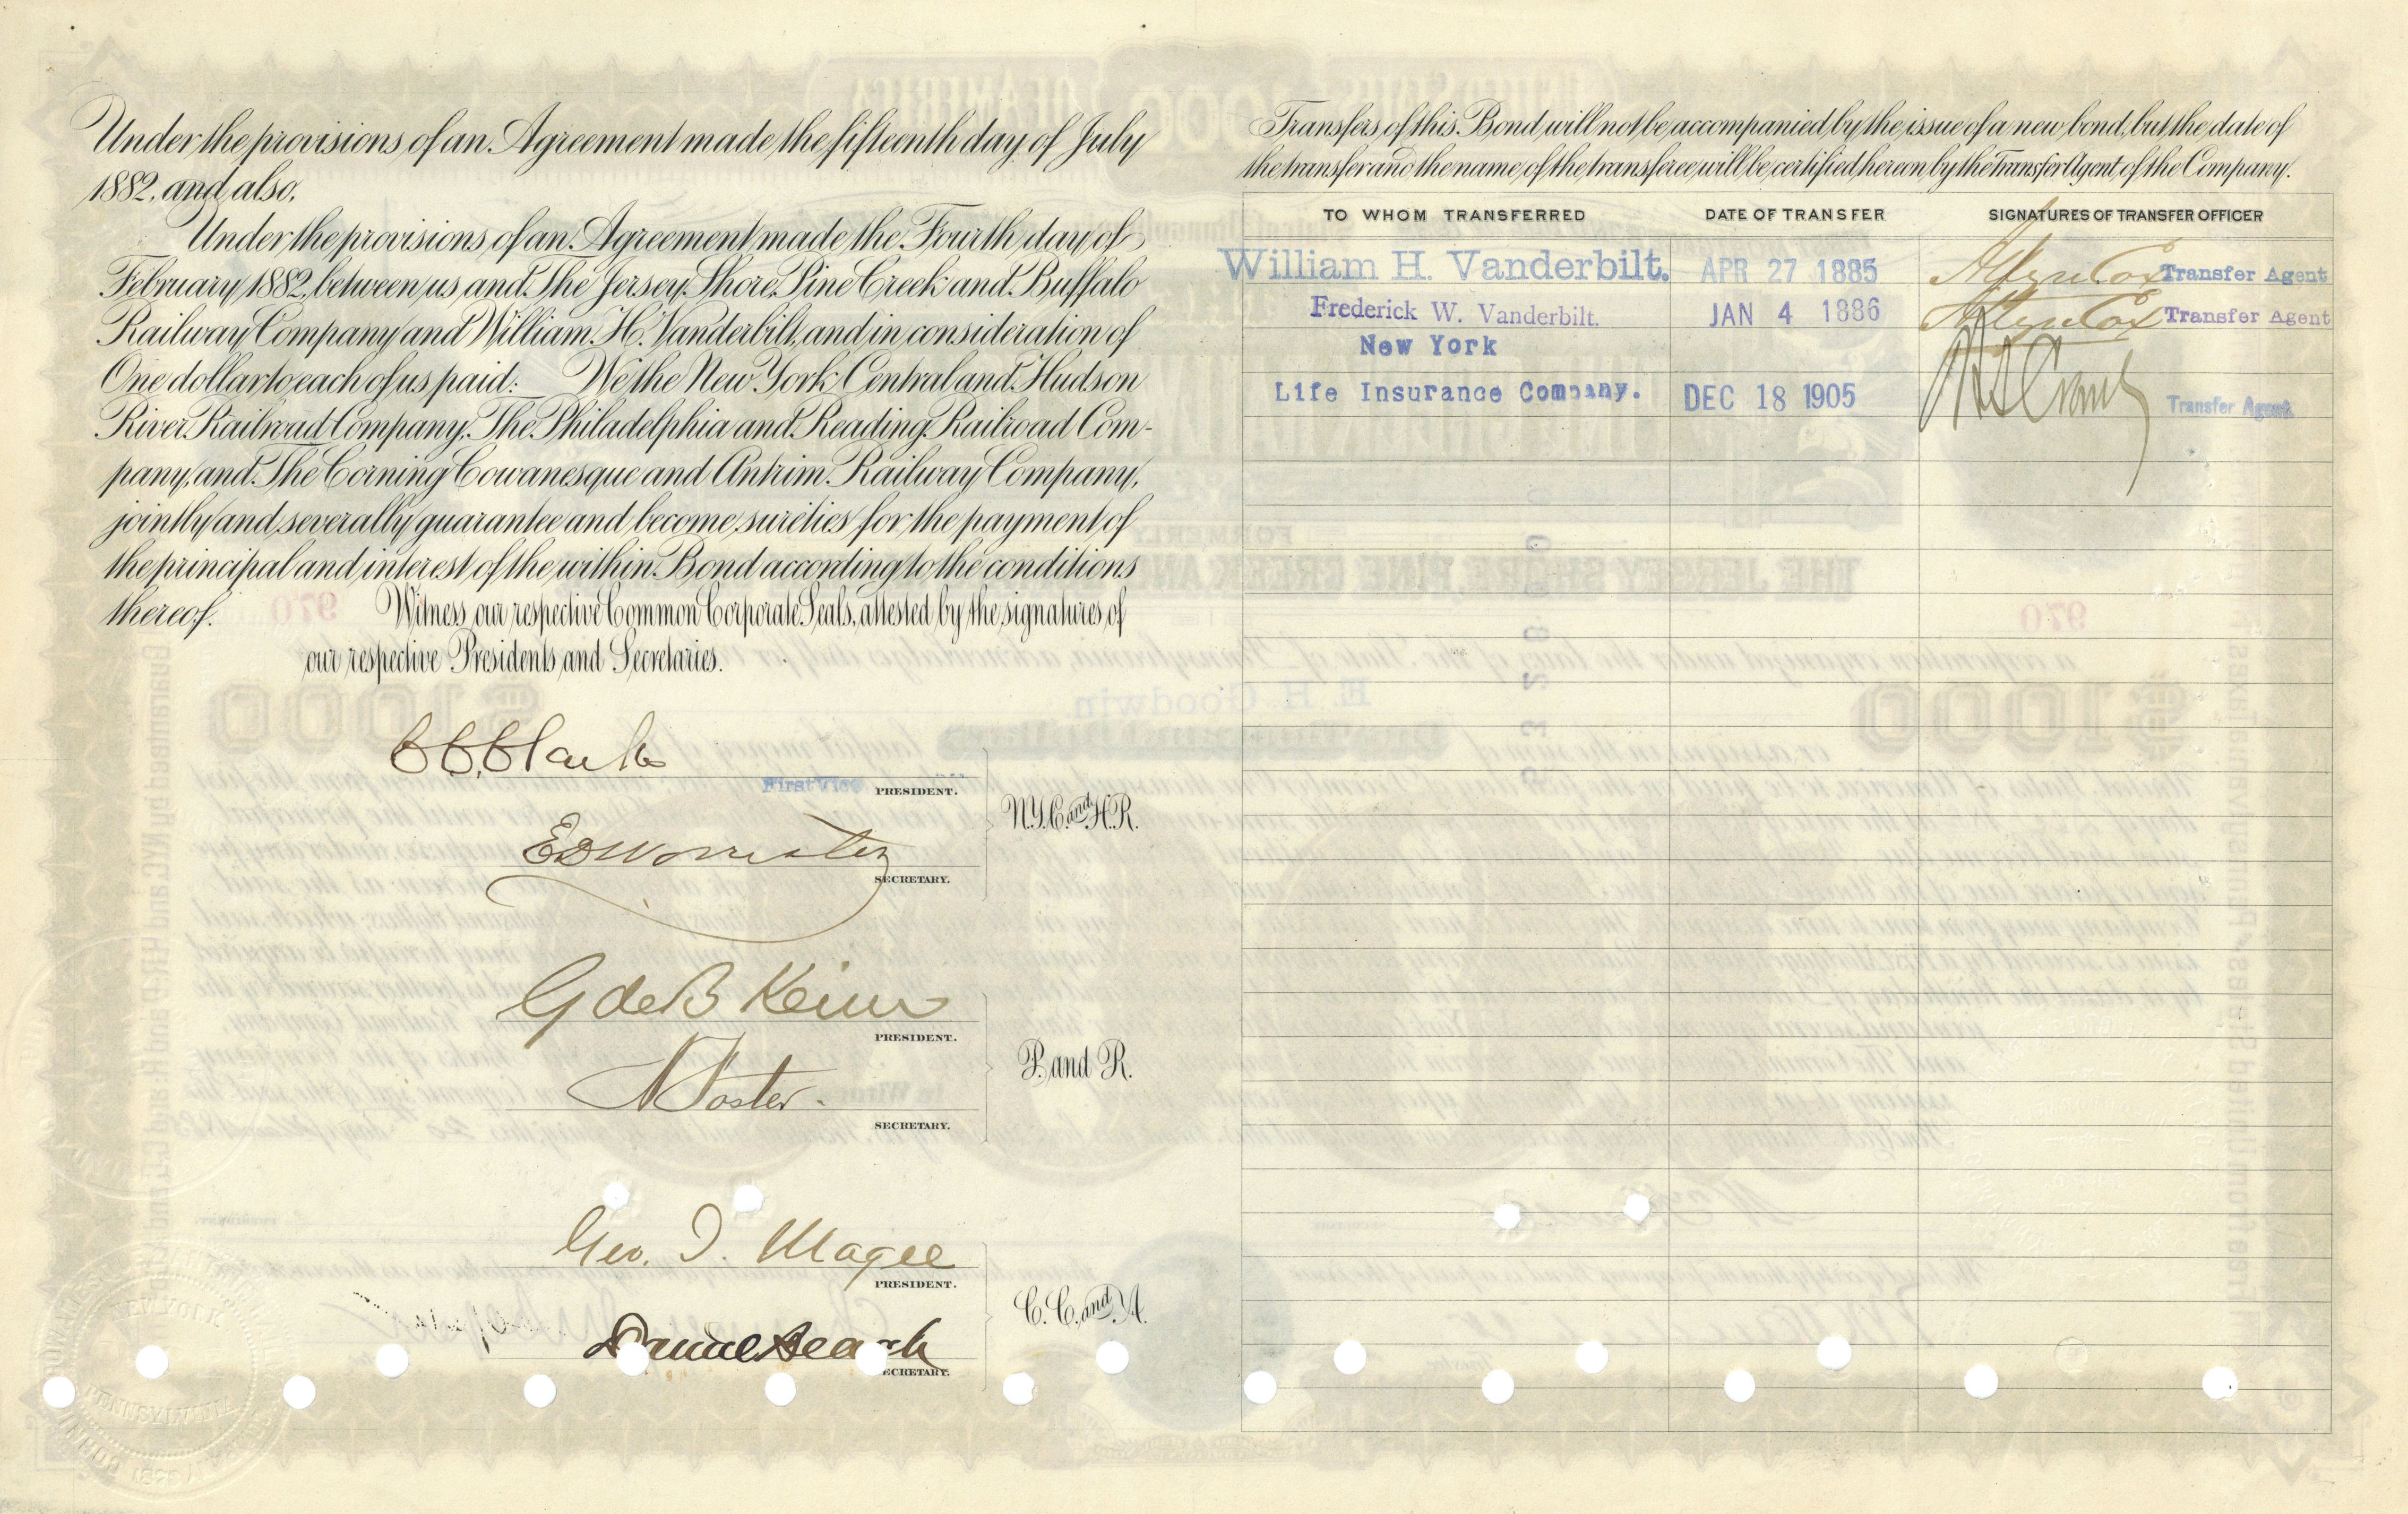 Under the provisions of an Agreement made the fifteenth day of July
1882, and also,
Under the provisions of an Agreement made the Fourth day of
February 1882, between us and The Jersey Shore, Pine Creek and Buffalo
Railway Company and William H. Vanderbilt, and in consideration of
One dollar to each of us paid: We the New York Central and Hudson
River Railroad Company, The Philadelphia and Reading Railroad Com-
pany, and The Corning Cowanesque and Antrim Railway Company,
jointly and severally guarantee and become sureties for the payment of
the principal and interest of the within Bond according to the conditions
thereof. Witness our respective Common Corporate Seals, attested by the signatures of
our respective Presidents and Secretaries.
C.C. Clarke
First Vice PRESIDENT.
N.Y.C. and H.R.
E D Worcester
SECRETARY.
G de B Keim
PRESIDENT.
P. and R.
SECRETARY.
Geo. J. Magee
PRESIDENT.
C. C. and A.
Daniel Beach
SECRETARY.
Transfers of this Bond will not be accompanied by the issue of a new bond, but the date of
the transfer and the name of the transferee will be certified hereon by the Transfer Agent of the Company.
TO WHOM TRANSFERRED DATE OF TRANSFER SIGNATURES OF TRANSFER OFFICER
William H. Vanderbilt. APR 27 1885 Allyn Cox Transfer Agent
Frederick W. Vanderbilt. JAN 4 1886 Allyn Cox Transfer Agent
New York
Life Insurance Company. DEC 18 1905 Transfer Agent
E. H. Goodwin
FORMERLY
970
970
$1000
$1000